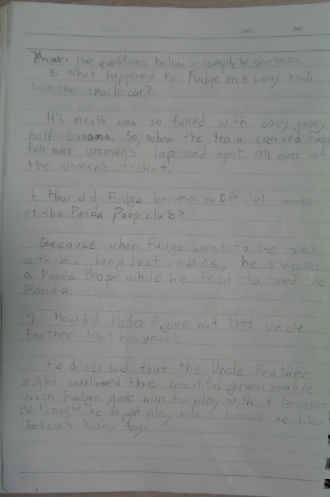 Answer the questions below in complete sentences
5. What happened to Fudge on his way back
from the snack car?
It's mouth was so filled with ooey gooey
half banana. So, when the train swerved Fudge
fell over women's lap and spit all over at
the women's t-shirt.
6. How did Fudge become an official member
of the Panda Poop club?
Because when Fudge went to the zoo
with his long lost cousins, he step on
a Panda Poop while he tried to feed the
Panda
7. How did Peter figure out that Uncle
Feather lost his voice?
He discribed that the Uncle Feather
might swallowed the beautiful green marble
when Fudge gave him to play with it because
He thought he might play with it becaus he likes
Tootsie's baby toys